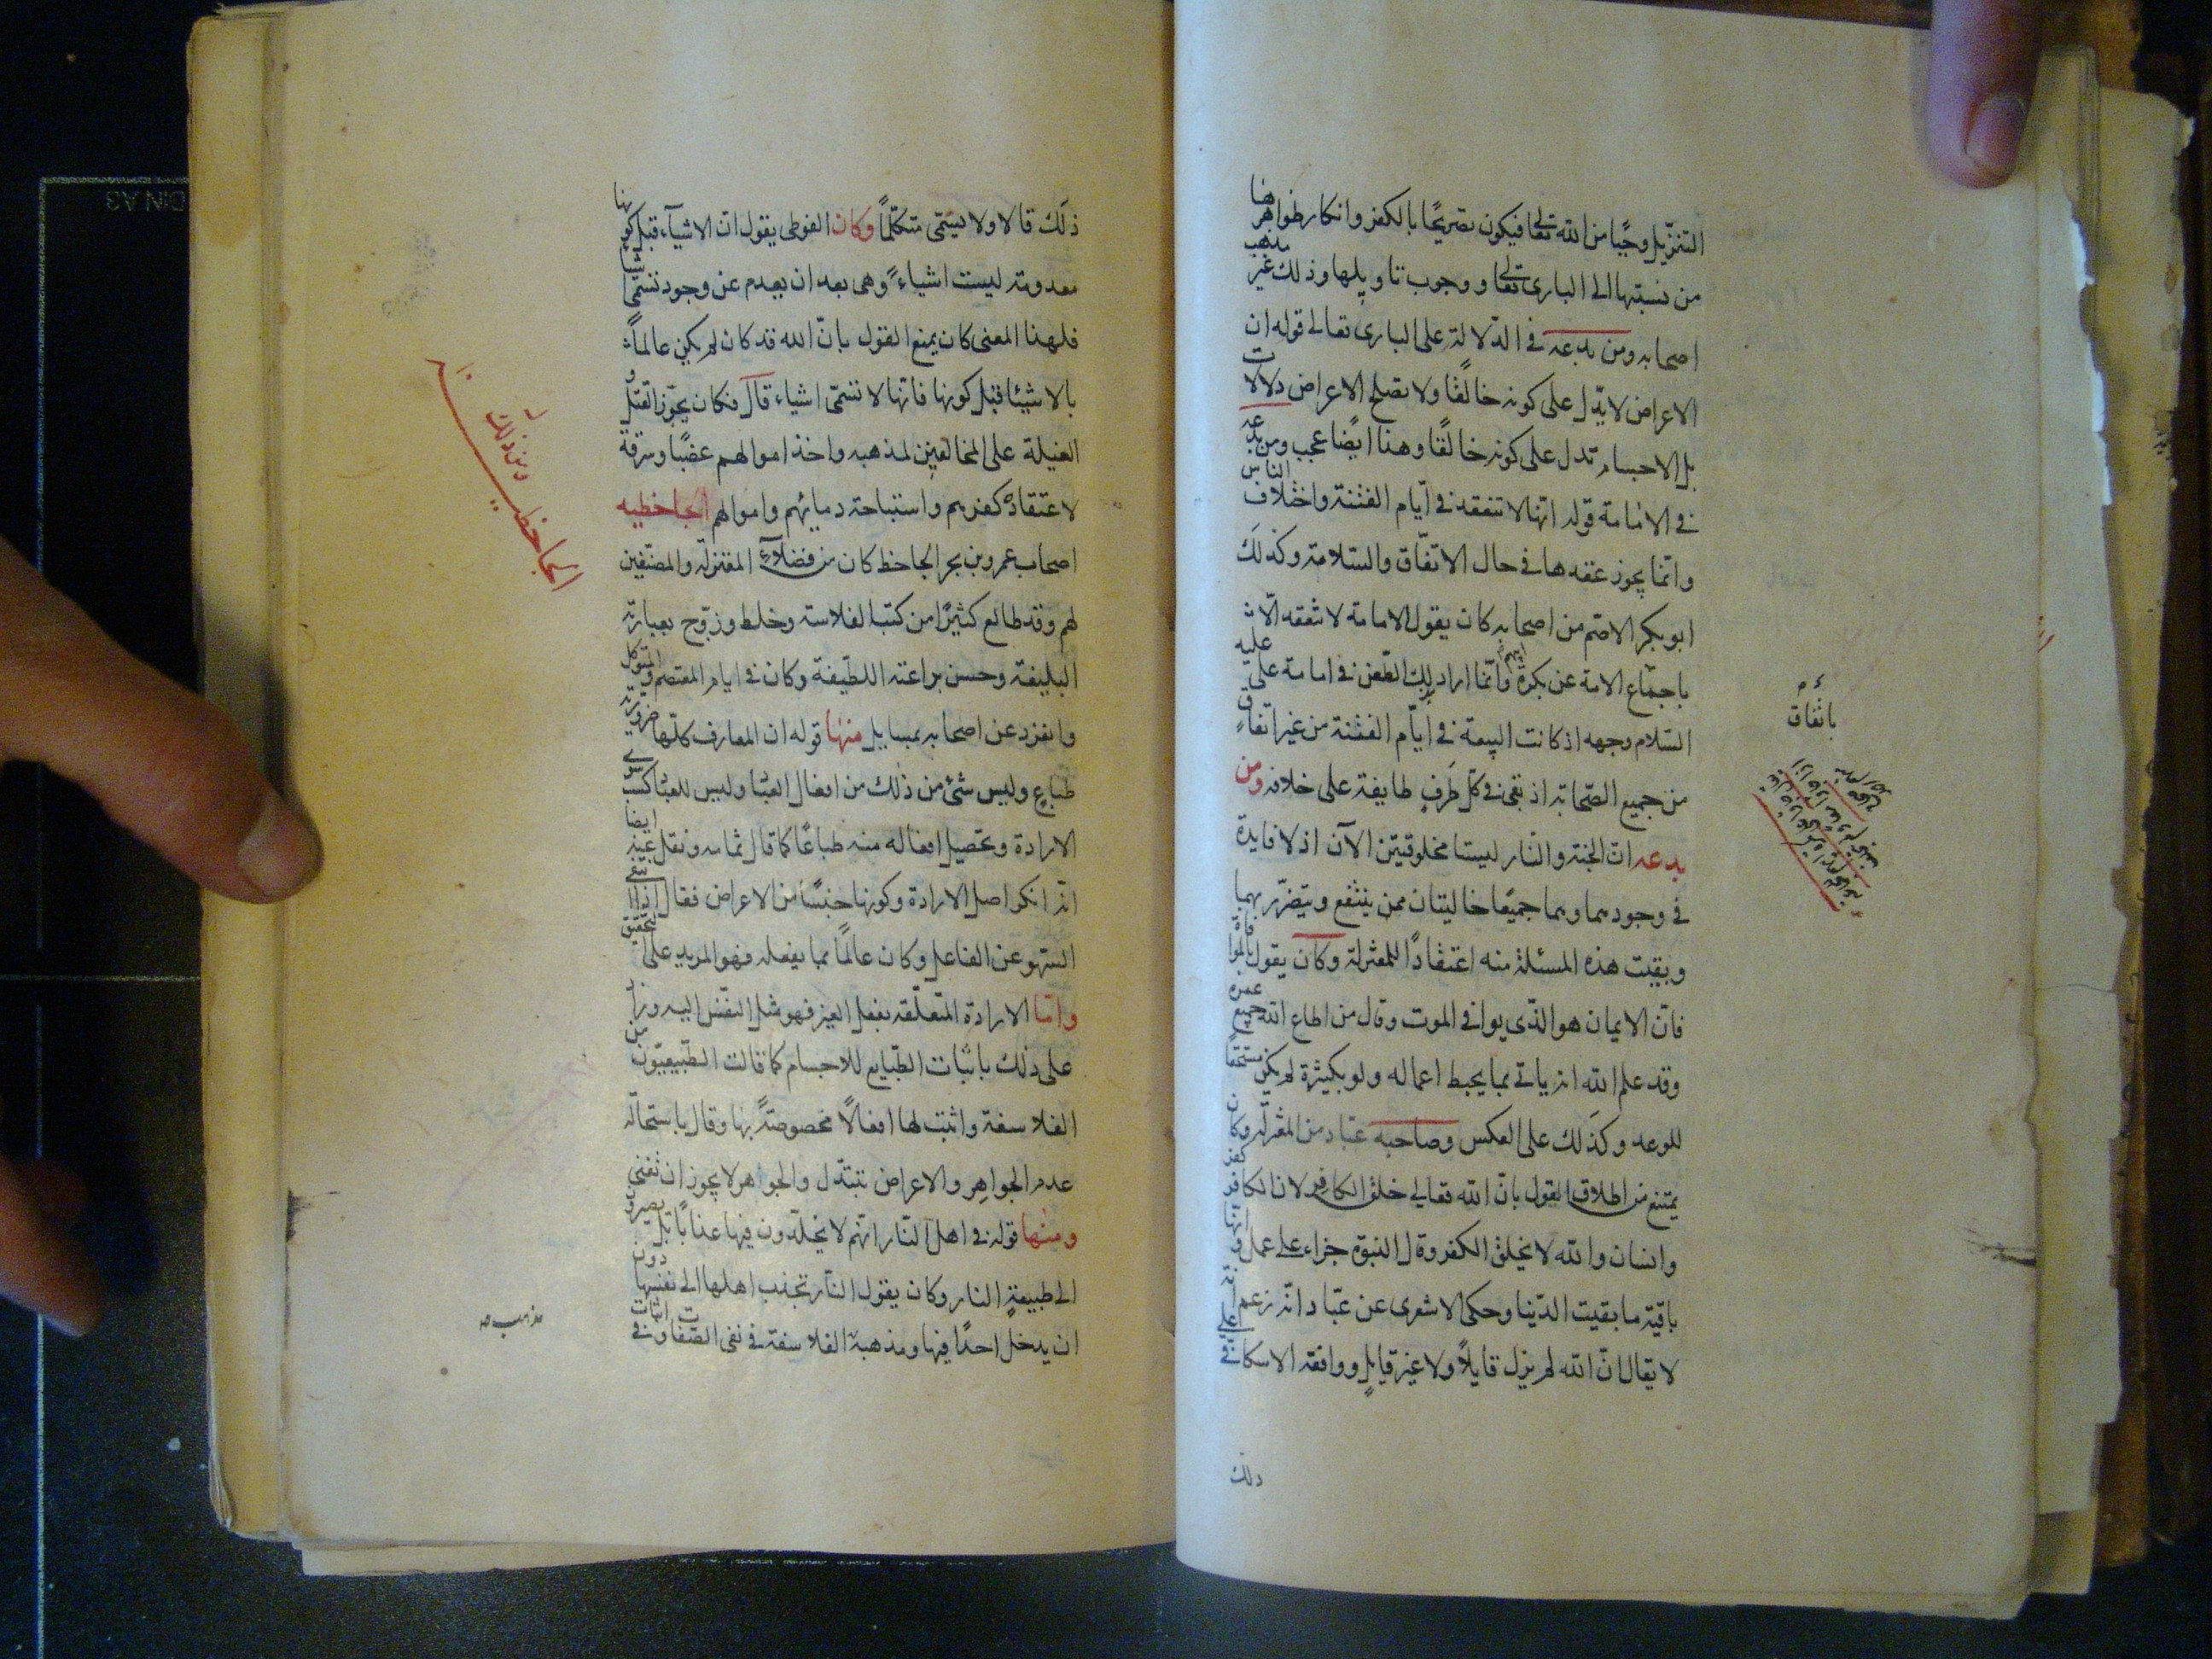 التنزيل وحيًا من الله تعالى فيكون تصريحًا بالكفر وانكار ظواهرها
من نسبتها الى البارى تعالى ووجوب تاويلها وذلك غير مذهب
اصحابه ومن بدعه فى الدّلالة على البارى تعالى قوله ان
الاعراض لا يدّل على كونه خالقًا ولا تصلح الاعراض دلالات
بل الاجسام تدل على كونه خالقًا وهذا ايضًا عجب ومن بدعه
فى الامامة قوله انها لا تنعقد فى ايّام الفتنة واختلاف الناس
وانّما يجوز عقدها فى حال الاتفّاق والسّلامة وكذلك
ابو بكر الاصّم من اصحابه كان يقول الامامة لا تنعقد الّا
باجمّاع الامة عن بكرة ابيهم وانّما اراد بذلك الطّعن فى امامة على عليه
السّلام وجهه اذ كانت البيعة فى ايّام الفتنة من غير اتفاق
من جميع الصّحابه اذ بقى فى كل طَرفٍ طايفة على خلافه ومن
بدعه انّ الجنّة والنّار ليستا مخلوقتين الآن اذ لا فايدة
فى وجودهما وهما جميعًا خاليتان ممن ينتفع ويتضّرر بهما
وبقيت هذه المسئلة منه اعتقادًا للمعتزلة وكان يقول بالموافاة
فانّ الايمان هو الذّى يوافى الموت وقال من اطاع الله جميع عمره
وقد علم الله انه ياتى بما يحبط اعماله ولو بكبيرة لم يكن مستحقا
للوعد وكذلك على العكس وصاحبه عبّاد من المعتزله وكان
يمتنع من اطلاق القول بانّ الله تعالى خلق الكافر لان الكافر كفر
وانسان والله لا يخلق الكفر وقال النبوّة جزاء على عمل وانّها
باقية ما بقيت الدّنيا وحكى الاشعرى عن عبّاد انّه زعم انه
لا يقال انّ الله لم يزل قايلاً ولا غير قايلٍ ووافقه الاسكافى على
ذلك
باتفاق
ذلك قالا ولا يسمّى متكلّمًا وكان الفوطى يقول انّ الاشياء قبل كونها
معدومة ليست اشياءً وهى بعد ان يعدم عن وجود تسمّى اشيا
فلهذا المعنى كان يمنع القول بانّ الله قد كان لم يكن عالماً
بالاشيئا قبل كونها فانّها لا تسمّى اشياء قال فكان يجوّز القتل و
الغيلة على المخالفين لمذهبه واخذ اموالهم غصبًا وسرقة
لاعتقاده كفرهم واستباحة دمائهم واموالهم الجاحظيه
اصحاب عمرو بن بحر الجاحظ كان من فضلآء المعتزله والمصنّفين
لهم وقد طالع كثيرًا من كتب الفلاسفة وخلط وروّج بعبارته
البليغة وحسن براعته اللطّيفة وكان فى ايام المعتصم والمتوكل
وانفرد عن اصحابه بمسايل منها قوله ان المعارف كلّها ضروريّة
طباع وليس شئ من ذلك من افعال العباد وليس للعباد كسب سوى
الارادة وتحصيل افعاله منه طباعًا كما قال ثمامه ونقل عنه ايضا
انّه انكر اصل الارادة وكونها جنسًا من الاعراض فقال اذا انتفى
السّهو عن الفاعل وكان عالمًا بما يفعله فهو المريد على التحقيق
وامّا الارادة المتعلّقة بفعل الغير فهو ميل النفّس اليه وزاد
على ذلك باثبات الطبّايع للاجسام كما قالت الطبّيعيّون من
الفلاسفة واثبت لها افعالاً مخصوصةً بها وقال باستحاله
عدم الجواهر والاعراض تتبدّل والجواهر لا يجوز ان تفنى
ومنها قوله فى اهل النّار انّهم لا يخلّدون فيها عذابًا بل يصيرون
الى طبيعة النار وكان يقول النّار تجذب اهلها الى نفسها دون
ان يدخل احدًا فيها ومذهبه الفلاسفة فى نفى الصّفات وفى اثبات
ومن ذلك
الجاحظيه
مذهب صه